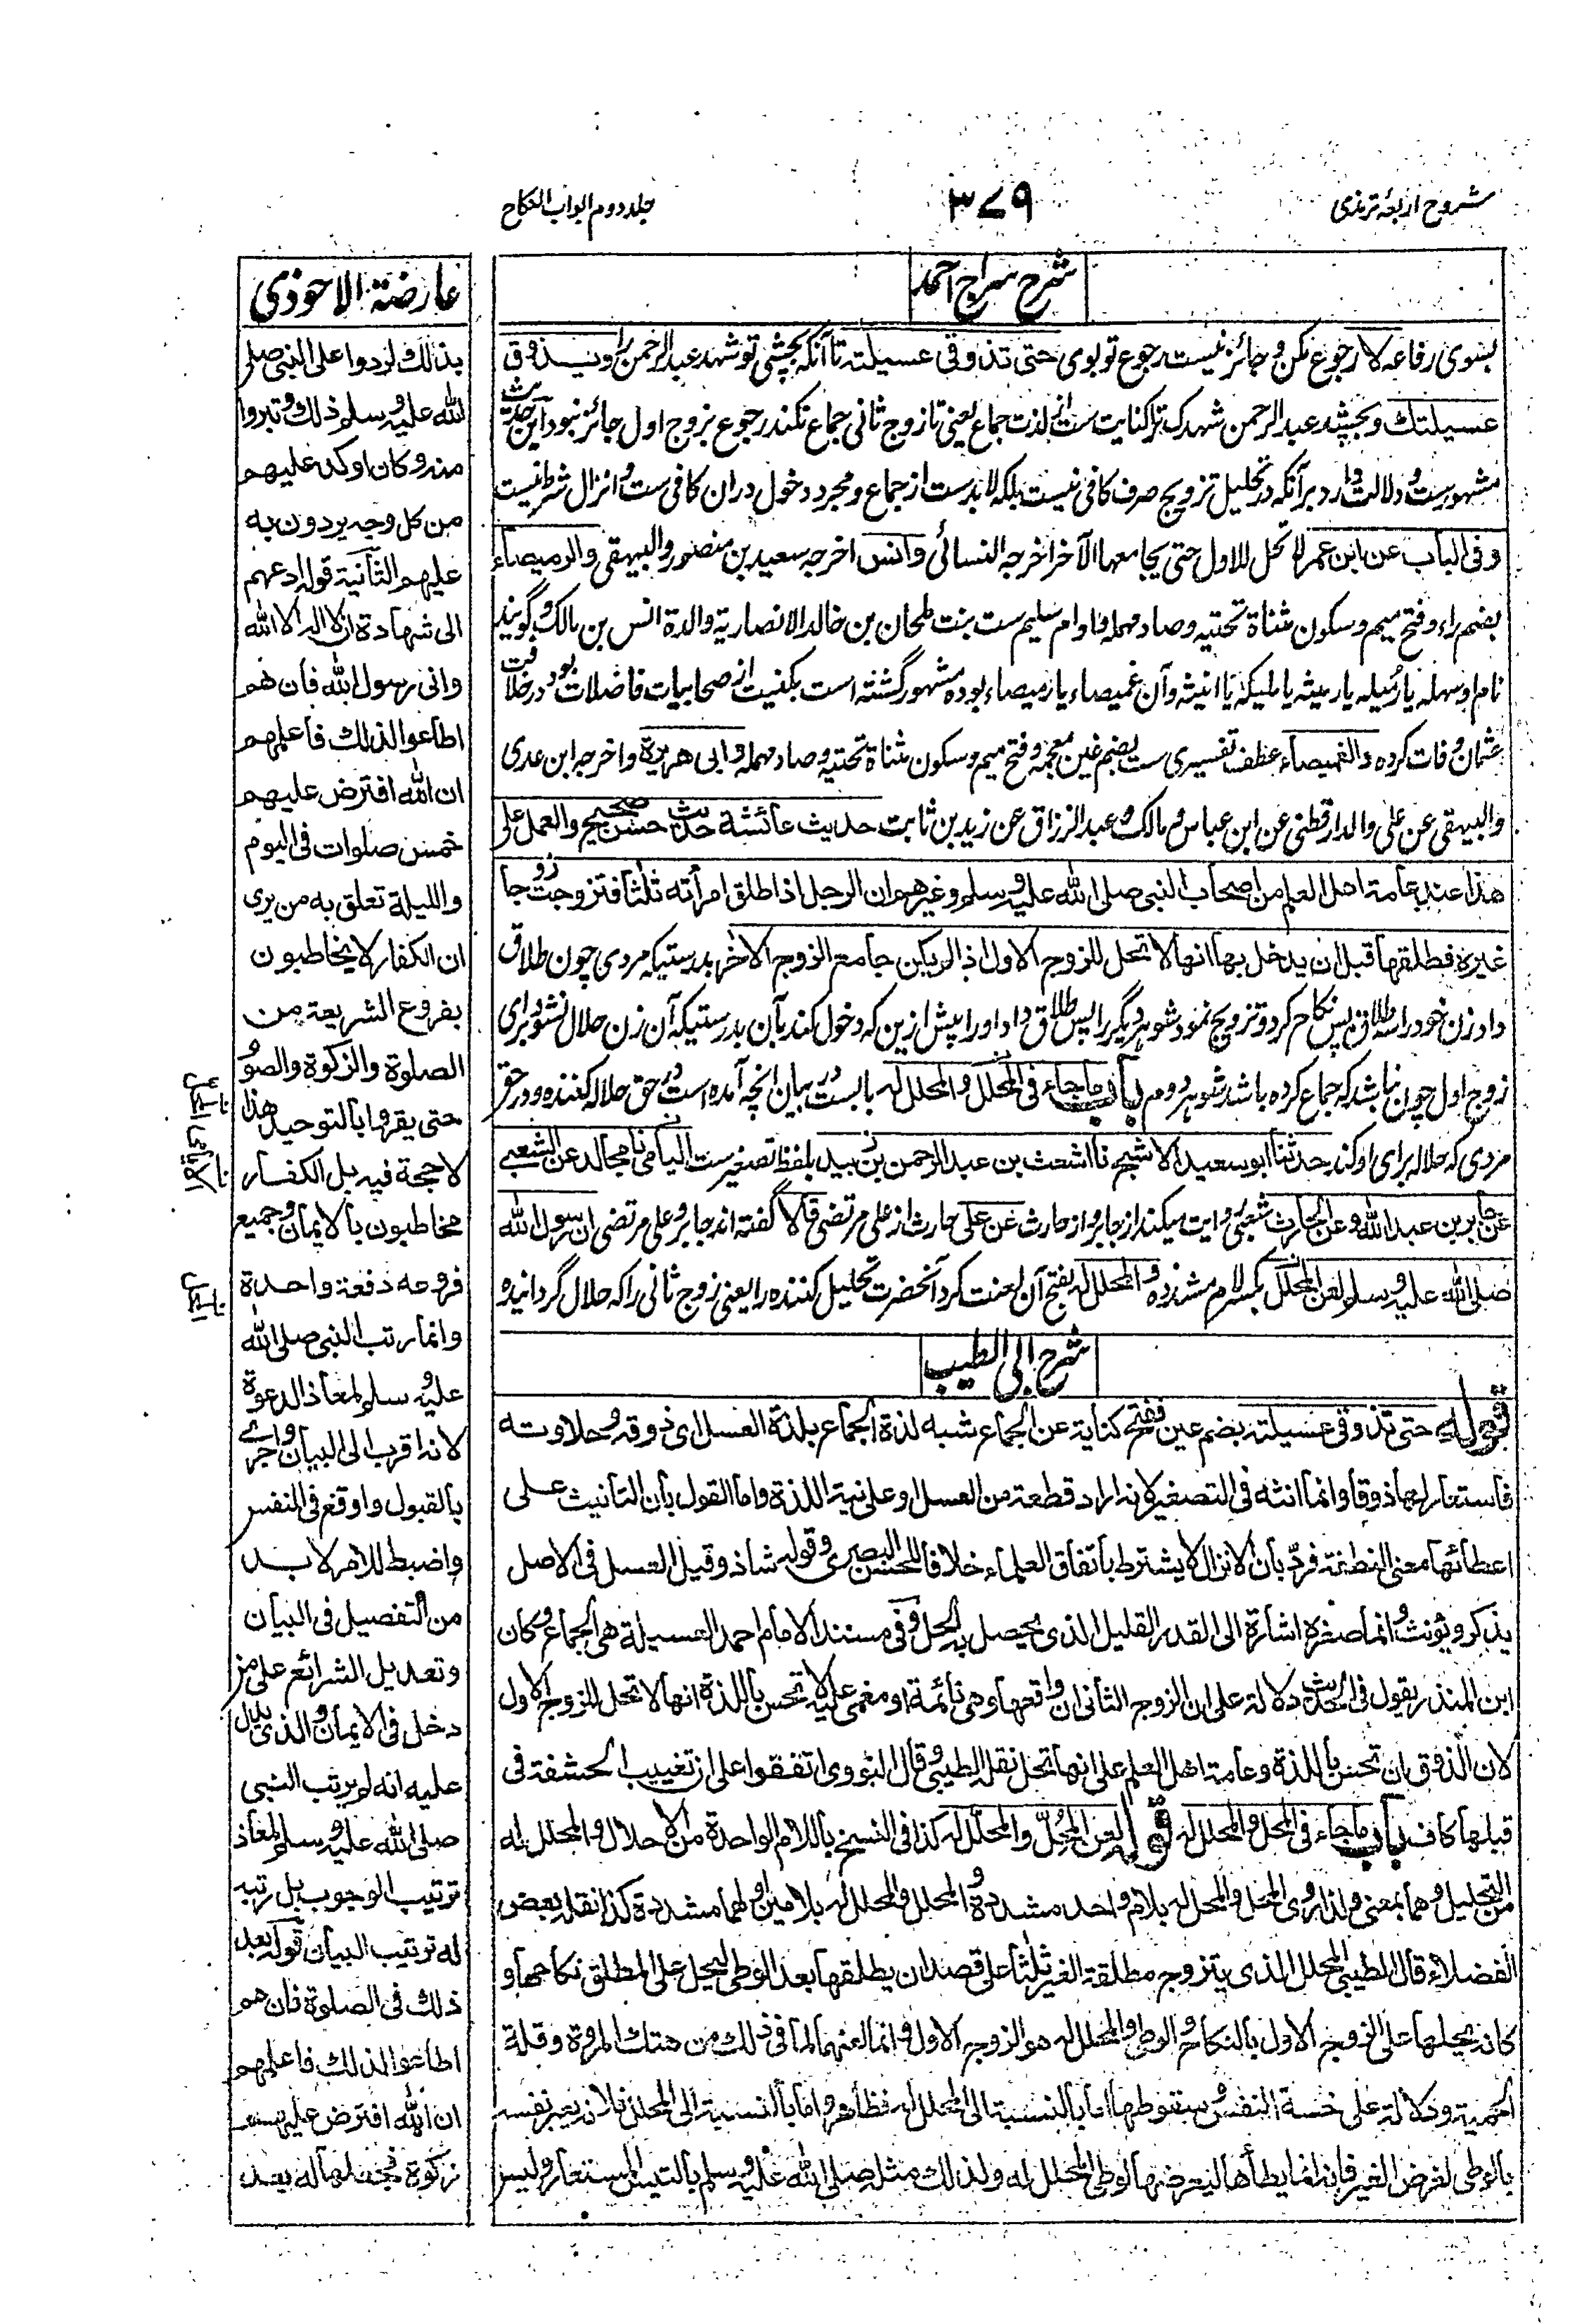 شروح اربعۂ ترمذی
۳۷۹
جلد دوم ابواب النکاح
شرح سراج احمد
بسوی رفاعه لا رجوع مکن و جائز نیست رجوع تو بوی حتی تذوقی عسیلته تا آنکه بچشی تو شهد عبدالرحمن را ویذوق
عسیلتك و بچشد عبدالرحمن شهدک ترا کنایت ست از لذت جماع یعنی تا زوج ثانی جماع نکند رجوع بزوج اول جائز نبود این حدیث
مشهورست و دلالت دارد بر آنکه در تحلیل تزویج صرف کافی نیست بلکه لابدست از جماع و مجرد دخول دران کافی ست و انزال شرط نیست
وفی الباب عن ابن عمر لا تحل للاول حتی یجامعها الآخر اخرجه النسائی وانس اخرجه سعید بن منصور والبیهقی والرمیصاء
بضم راء و فتح میم و سکون مثناة تحتیه و صاد مهمله و او ام سلیم ست بنت ملحان بن خالد الانصاریة والدۀ انس بن مالک و گویند
نام او سهله یا رمیله یا رمیثه یا ملیکه یا انیثه و آن غمیصاء یا رمیصاء بوده مشهور گشته است بکنیت از صحابیات فاضلات بود در خلافت
عثمان وفات کرده والغمیصاء عطف تفسیری ست بضم غین معجمه و فتح میم و سکون مثناة تحتیه و صاد مهمله وابی هریرة واخرجه ابن عدی
والبیهقی عن علی والدارقطنی عن ابن عباس و مالک و عبدالرزاق عن زید بن ثابت حدیث عائشة حدیث حسن صحیح والعمل علی
هذا عند عامة اهل العلم من اصحاب النبی صلی الله علیه وسلم وغیرهم ان الرجل اذا طلق امرأته ثلثا فتزوجت زوجا
غیره فطلقها قبل ان یدخل بها انها لا تحل للزوج الاول اذا لم یکن جامع الزوج الآخر بدرستیکه مردی چون طلاق
داد زن خود را سه طلاق پس نکاح کرد و تزویج نمود شوهر دیگر را پس طلاق داد او را پیش ازین که دخول کند بآن بدرستیکه آن زن حلال نشود برای
زوج اول چون نباشد که جماع کرده باشد شوهر دوم باب ما جاء فی المحلل والمحلل له بابست در بیان انچه آمده است در حق حلاله کننده و در حق
مردی که حلاله برای او کند حدثنا ابو سعید الاشج نا اشعث بن عبدالرحمن بن زبید بلفظ تصغیرست الیامی نا مجالد عن الشعبی
عن جابر بن عبد الله وعن الحارث شعبی روایت میکند از جابر و از حارث عن علی حارث از علی مرتضی قالا گفته اند جابر و علی مرتضی ان رسول الله
صلی الله علیه وسلم لعن المحلل بکسر لام مشدده والمحلل له بفتح آن لعنت کرد آنحضرت تحلیل کننده را یعنی زوج ثانی را که حلال گرداننده
شرح ابی الطیب
قوله حتی تذوقی عسیلته بضم عین وفتح کنایة عن الجماع شبه لذة الجماع بلذة العسل ای ذوقه وحلاوته
فاستعار لها ذوقا وانما انثه فی التصغیر لانه اراد قطعة من العسل او علی نیة اللذة واما القول بان التأنیث علی
اعطائها معنی النطفة فردّ بان الانزال لا یشترط باتفاق العلماء خلافا للحسن البصری وقوله شاذ وقیل العسل فی الاصل
یذکر ویؤنث وانما صغره اشارة الی القدر القلیل الذی یحصل به الحل وفی مسند الامام احمد العسیلة هی الجماع وکان
ابن المنذر یقول فی الحدیث دلالة علی ان الزوج الثانی ان واقعها وهی نائمة او مغمی علیها لا تحس باللذة انها لا تحل للزوج الاول
لان الذوق ان تحس باللذة وعامة اهل العلم علی انها تحل نقله الطیبی وقال النووی اتفقوا علی ان تغییب الحشفة فی
قبلها کاف باب ما جاء فی المحل والمحلل له قوله لعن المُحِلّ والمحلَّل له کذا فی النسخ باللام الواحدة من الاحلال والمحلل له
من التحلیل وهما بمعنی ولذا روی المحل والمحل له بلام واحد مشددة والمحلل والمحلل له بلامین اولهما مشددة کذا نقله بعض
الفضلاء قال الطیبی المحلل الذی یتزوج مطلقة الغیر ثلثا علی قصد ان یطلقها بعد الوطی لیحل علی المطلق نکاحها و
کانه یحلها علی الزوج الاول بالنکاح والوطی والمحلل له هو الزوج الاول وانما لعنهما لما فی ذلك من هتك المروة وقلة
الحمیة ودلالة علی خسة النفس وسقوطها اما بالنسبة الی المحلل له فظاهر واما بالنسبة الی المحلل فلانه یعیر نفسه
بالوطی لغرض الغیر فانه انما یطأها لیعرضها لوطی المحلل له ولذلك مثله صلی الله علیه وسلم بالتیس المستعار ولیس
عارضة الاحوذی
بذلك لردوا علی النبی صلی
الله علیه وسلم ذلك وتبروا
منه وکان اوکد علیهم
من کل وجه یردون به
علیهم الثانیة قوله ادعهم
الی شهادة ان لا اله الا الله
وانی رسول الله فان هم
اطاعوا لذلك فاعلمهم
ان الله افترض علیهم
خمس صلوات فی الیوم
واللیلة تعلق به من یری
ان الکفار لا یخاطبون
بفروع الشریعة من
الصلوة والزکوة والصوم
حتی یقروا بالتوحید وهذا
لا حجة فیه بل الکفار
مخاطبون بالایمان وجمیع
فروعه دفعة واحدة
وانما رتب النبی صلی الله
علیه وسلم لمعاذ الدعوة
لانه اقرب الی البیان واحری
بالقبول واوقع فی النفس
واضبط للامر لا بد
من التفصیل فی البیان
وتعدیل الشرائع علی من
دخل فی الایمان والذی یدل
علیه انه لم یرتب النبی
صلی الله علیه وسلم لمعاذ
ترتیب الوجوب بل رتبه
له ترتیب البیان قوله بعد
ذلك فی الصلوة فان هم
اطاعوا لذلك فاعلمهم
ان الله افترض علیهم
زکوة فجعلها له بعد